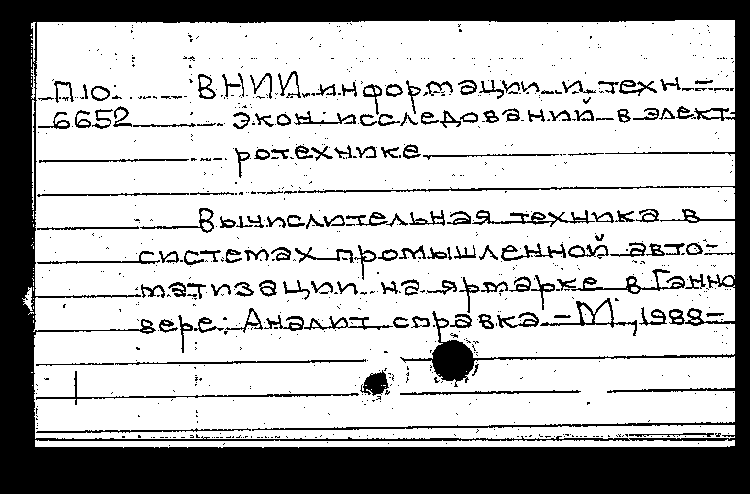 П10. ВНИИ информации и техн-
6652 экон. исследований в элект-
ротехнике.
Вычислительная техника в
системах промышленной авто-
матизации на ярмарке в Ганно
вере: Аналит. справка. - М., 1988-